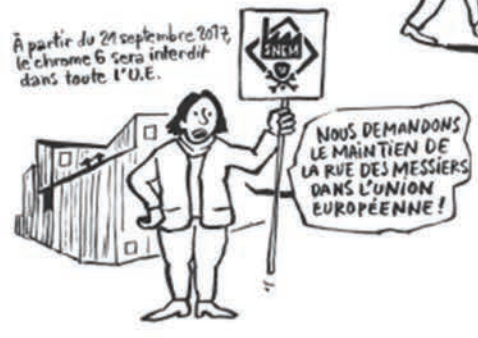 À partir du 21 septembre 2017,
le chrome 6 sera interdit
dans toute l'U.E.
SNEM
NOUS DEMANDONS
LE MAINTIEN DE
LA RUE DES MESSIERS
DANS L'UNION
EUROPÉENNE !